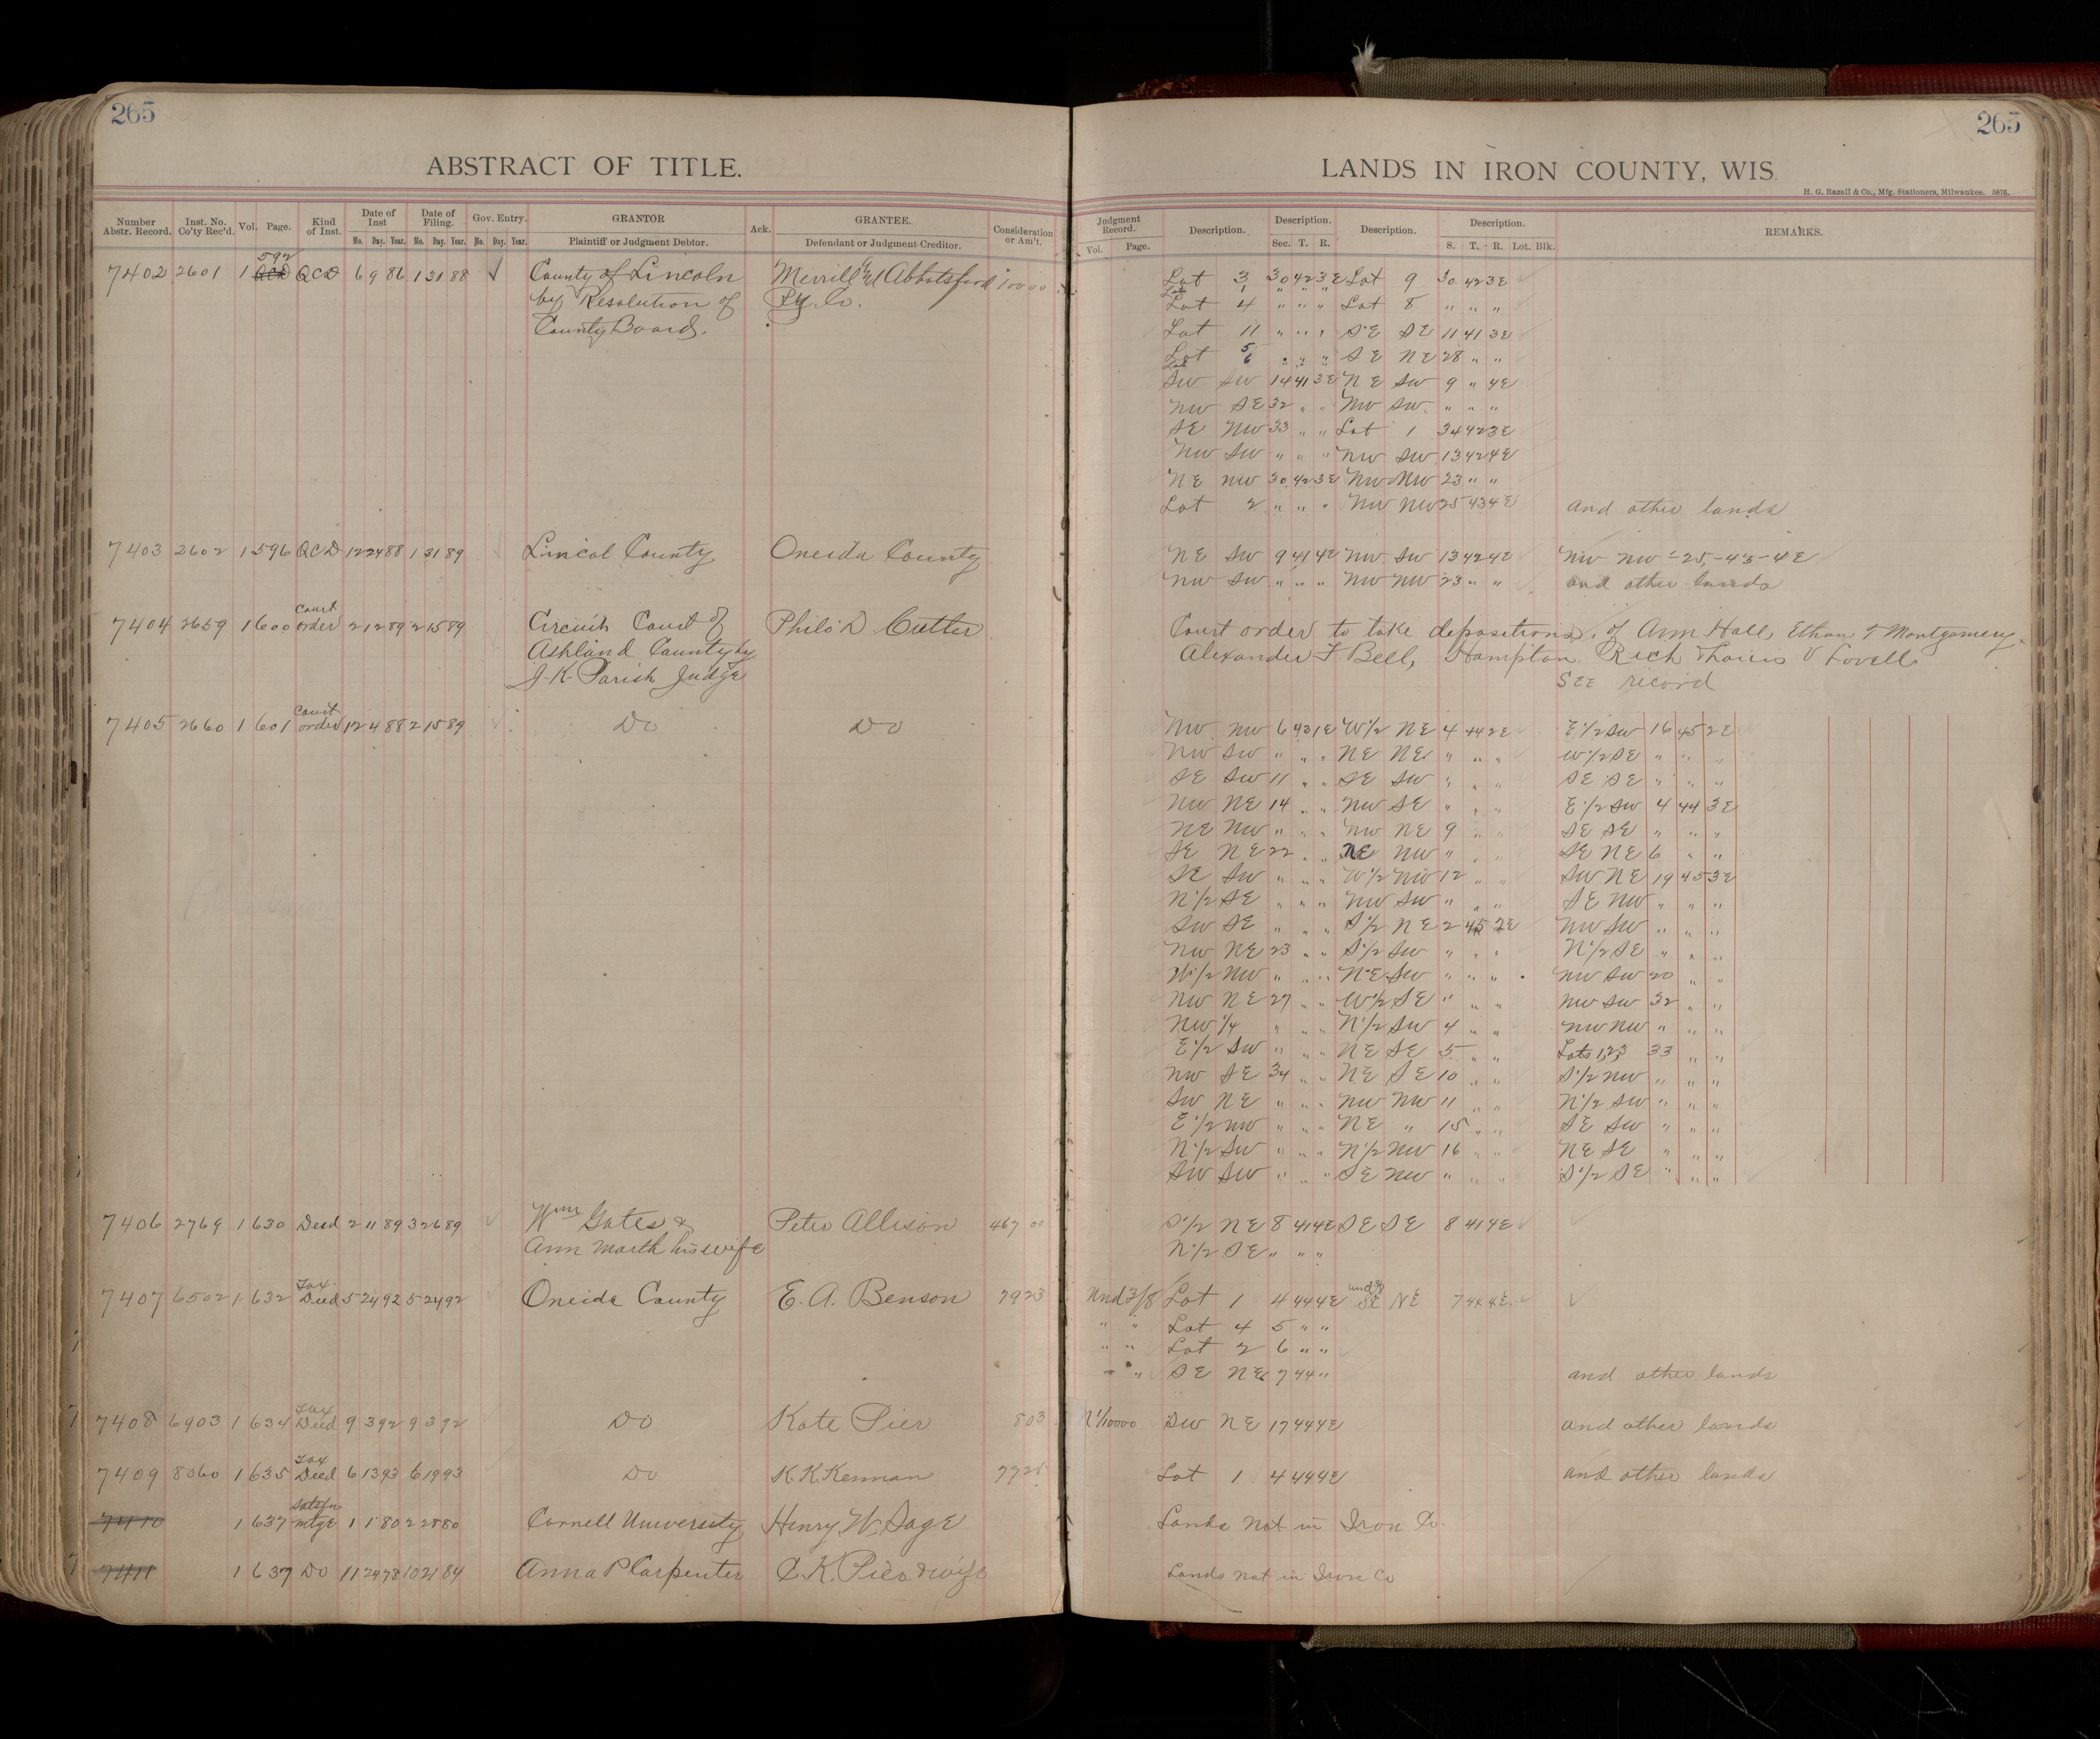 265
ABSTRACT OF TITLE.
Number Abstr. Record. Inst. No. Co'ty Rec'd. Vol. Page. Kind of Inst. Date of Inst Date of Filing. Gov. Entry. GRANTOR Ack. GRANTEE. Consideration or Am't.
Mo. Day. Year. Mo. Day. Year. No. Day. Year. Plaintiff or Judgment Debtor. Defendant or Judgment Creditor.
592
7402 2601 1 QCD QCD 6 9 86 1 31 88 County of Lincoln Merrill & Abbotsford 100 00
by Resolution of Ry. Co.
County Board.
7403 2602 1 596 QCD 12 24 88 1 31 89 Lincol County Oneida County
Court
7404 2659 1 600 order 2 12 89 2 15 89 Circuit Court of Philo D Cutter
Ashland County by
J. K. Parish Judge
Court
7405 2660 1 601 order 12 4 88 2 15 89 Do Do
7406 2769 1 630 Deed 2 11 89 3 26 89 Wm Gates & Peter Allison 467 00
Ann Marth his wife
Tax
7407 6502 1 632 Deed 5 24 92 5 24 92 Oneida County E. A. Benson 79 23
Tax
7408 6903 1 634 Deed 9 3 92 9 3 92 Do Kate Pier 8 03
Tax
7409 8060 1 635 Deed 6 13 93 6 19 93 Do K. K. Kennan
Satsfn
7410 1 637 mtge 1 1 80 2 28 80 Cornell University Henry W. Sage
7411 1 637 Do 11 24 78 10 21 84 Anna P Carpenter C. K. Pier & wife
265
LANDS IN IRON COUNTY, WIS.
H. G. Razall & Co., Mfg. Stationers, Milwaukee. 5876.
Judgment Record. Description. Description. Description. Description. REMARKS.
Vol. Page. Sec. T. R. S. T. R. Lot. Blk.
Lot 3 30 42 3E Lot 9 30 42 3E
Lot 1 " " "
Lot 4 " " " Lot 8 " " "
Lot 11 " " " SE SE 11 41 3E
Lot 5
6 " " " SE NE 28 " "
SW SW 14 41 3E NE SW 9 " 4E
NW SE 32 " " NW SW " " "
SE NW 33 " " Lot 1 34 42 3E
NW SW " " " NW SW 13 42 4E
NE NW 30 42 3E NW NW 23 " "
Lot 2 " " " NW NW 25 43 4E and other lands
NE SW 9 41 4E NW SW 13 42 4E NW NW - 25 - 43 - 4E
NW SW " " " NW NW 23 " " and other lands
Court order to take depositions of Ann Hall, Ethan T Montgomery
Alexander F Bell, Hampton Rich Lovell
See record
NW NW 6 43 1E W 1/2 NE 4 44 2E E 1/2 SW 16 45 2E
NW SW " " " NE NE " " " W 1/2 SE " " "
SE SW 11 " " SE SW " " " SE SE " " "
NW NE 14 " " NW SE " " " E 1/2 SW 4 44 3E
NE NW " " " NW NE 9 " " SE SE " " "
SE NE 22 " " NE NW " " " SE NE 6 " "
SE SW " " " W 1/2 NW 12 " " SW NE 19 45 3E
N 1/2 SE " " " NW SW " " " SE NW " " "
SW SE " " " S 1/2 NE 2 45 2E NW SW " " "
NW NE 23 " " S 1/2 SW " " " N 1/2 SE " " "
W 1/2 NW " " " NE SW " " " NW SW 20 " "
NW NE 27 " " W 1/2 SE " " " NW SW 32 " "
NW 1/4 " " " N 1/2 SW 4 " " NW NW " " "
E 1/2 SW " " " NE SE 5 " " Lots 1,2,3 33 " "
NW SE 34 " " NE SE 10 " " S 1/2 NW " " "
SW NE " " " NW NW 11 " " N 1/2 SW " " "
E 1/2 NW " " " NE " 15 " " SE SW " " "
N 1/2 SW " " " N 1/2 NW 16 " " NE SE " " "
SW SW " " " SE NW " " " S 1/2 SE " " "
S 1/2 NE 8 41 4E SE SE 8 41 4E
N 1/2 SE " " "
Und 3/8 Lot 1 4 44 4E SE NE 7 44 4E
" " Lot 4 5 " "
" " Lot 2 6 " "
" " SE NE 7 44 " and other lands
SW NE 17 44 4E and other lands
Lot 1 4 44 4E and other lands
Lands not in Iron Co.
Lands not in Iron Co